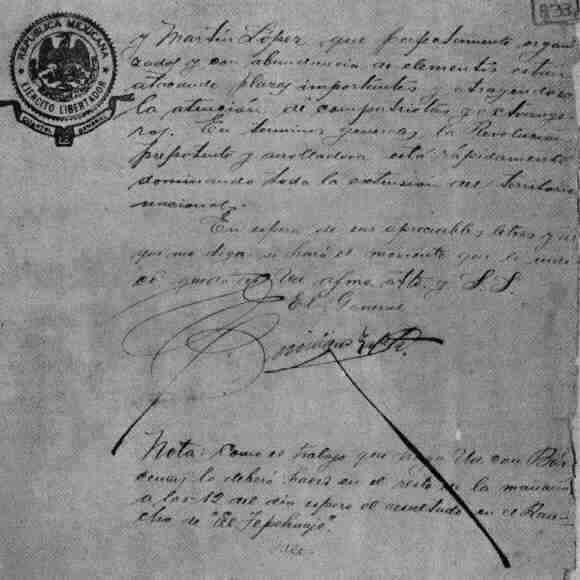 833
REPUBLICA MEXICANA
EJERCITO LIBERTADOR
CUARTEL GENERAL
y Martin López, que perfectamente organi
zados y con abundancia de elementos estan
atacando plazas importantes y atrayendose
la atención de compatriotas y extranje
ros. En terminos generales, la Revolucion
prepotente y arrolladora está rápidamente
dominando toda la extension del territorio
nacional.
En espera de sus apreciables letras y
que me diga si hará el movimiento que le
quedo de Ud afmo. atto. y S. S.
El General
Nota: Como el trabajo que haga Ud con Bár
cenas lo deberá hacer en el resto de la mañana
a las 12 del dia espero el resultado en el Ran
cho de "El Tepehuaje".